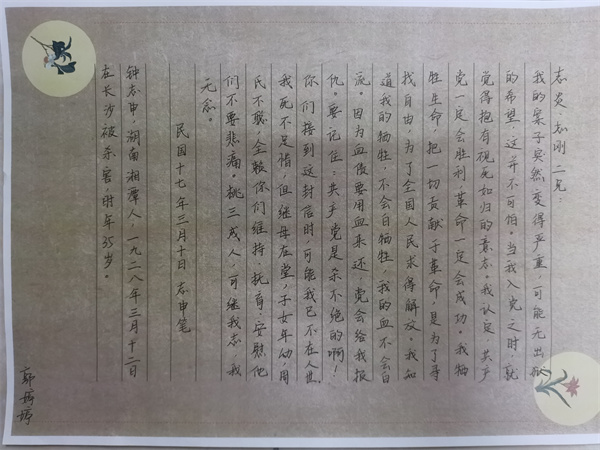 志炎、志刚二兄：
我的案子突然变得严重，可能无出狱
的希望，这并不可怕。当我入党之时，就
觉得抱有视死如归的意志。我认定，共产
党一定会胜利，革命一定会成功。我牺
牲生命，把一切贡献于革命，是为了寻
找自由，为了全国人民求得解放。我知
道我的牺牲，不会白牺牲，我的血不会白
流。因为血债要用血来还，党会给我报
仇。要记住：共产党是杀不绝的啊！
你们接到这封信时，可能我已不在人世，
我死不足惜，但继母在堂，子女年幼，周
氏不聪，全赖你们维持、抚育、安慰他
们不要悲痛。桃三成人，可继我志，我
无念。
民国十七年三月十日 志申笔
钟志申，湖南湘潭人，一九二八年三月十二日
在长沙被杀害，时年35岁。
郭婷婷